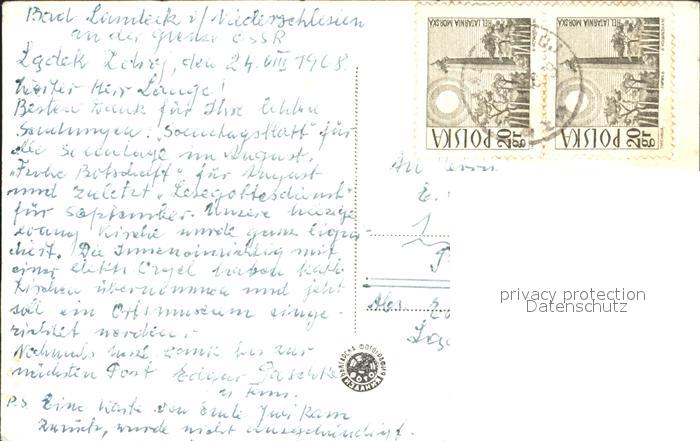 Bad Landeck i/ Niederschlesien
an der Grenze ČSSR
Lądek Zdrój, den 24. VIII 1968.
Werter Herr Lange!
Besten Dank für Ihre lieben
Sendungen: "Sonntagsblatt" für
alle Sonntage im August,
"Frohe Botschaft" für August
und zuletzt "Lesegottesdienst"
für September. Unsere hiesige
evang Kirche wurde ganz liqui-
diert. Die Inneneinrichtung mit
einer elektr. Orgel haben kath.
Kirchen übernommen und jetzt
soll ein Ortsmuseum einge-
richtet werden.
Nochmals herzl. Dank bis zur
nächsten Post Edgar
P.S Eine Karte von Ende Juni kam
zurück, wurde nicht ausgehändigt.
An Herrn
E.
Abs.
BELLATARNIA MORSKA
POLSKA
20 gr
BELLATARNIA MORSKA
POLSKA
20 gr
БЪЛГАРСКА ФОТОГРАФИЯ
ИЗДАНИЕ
privacy protection
Datenschutz